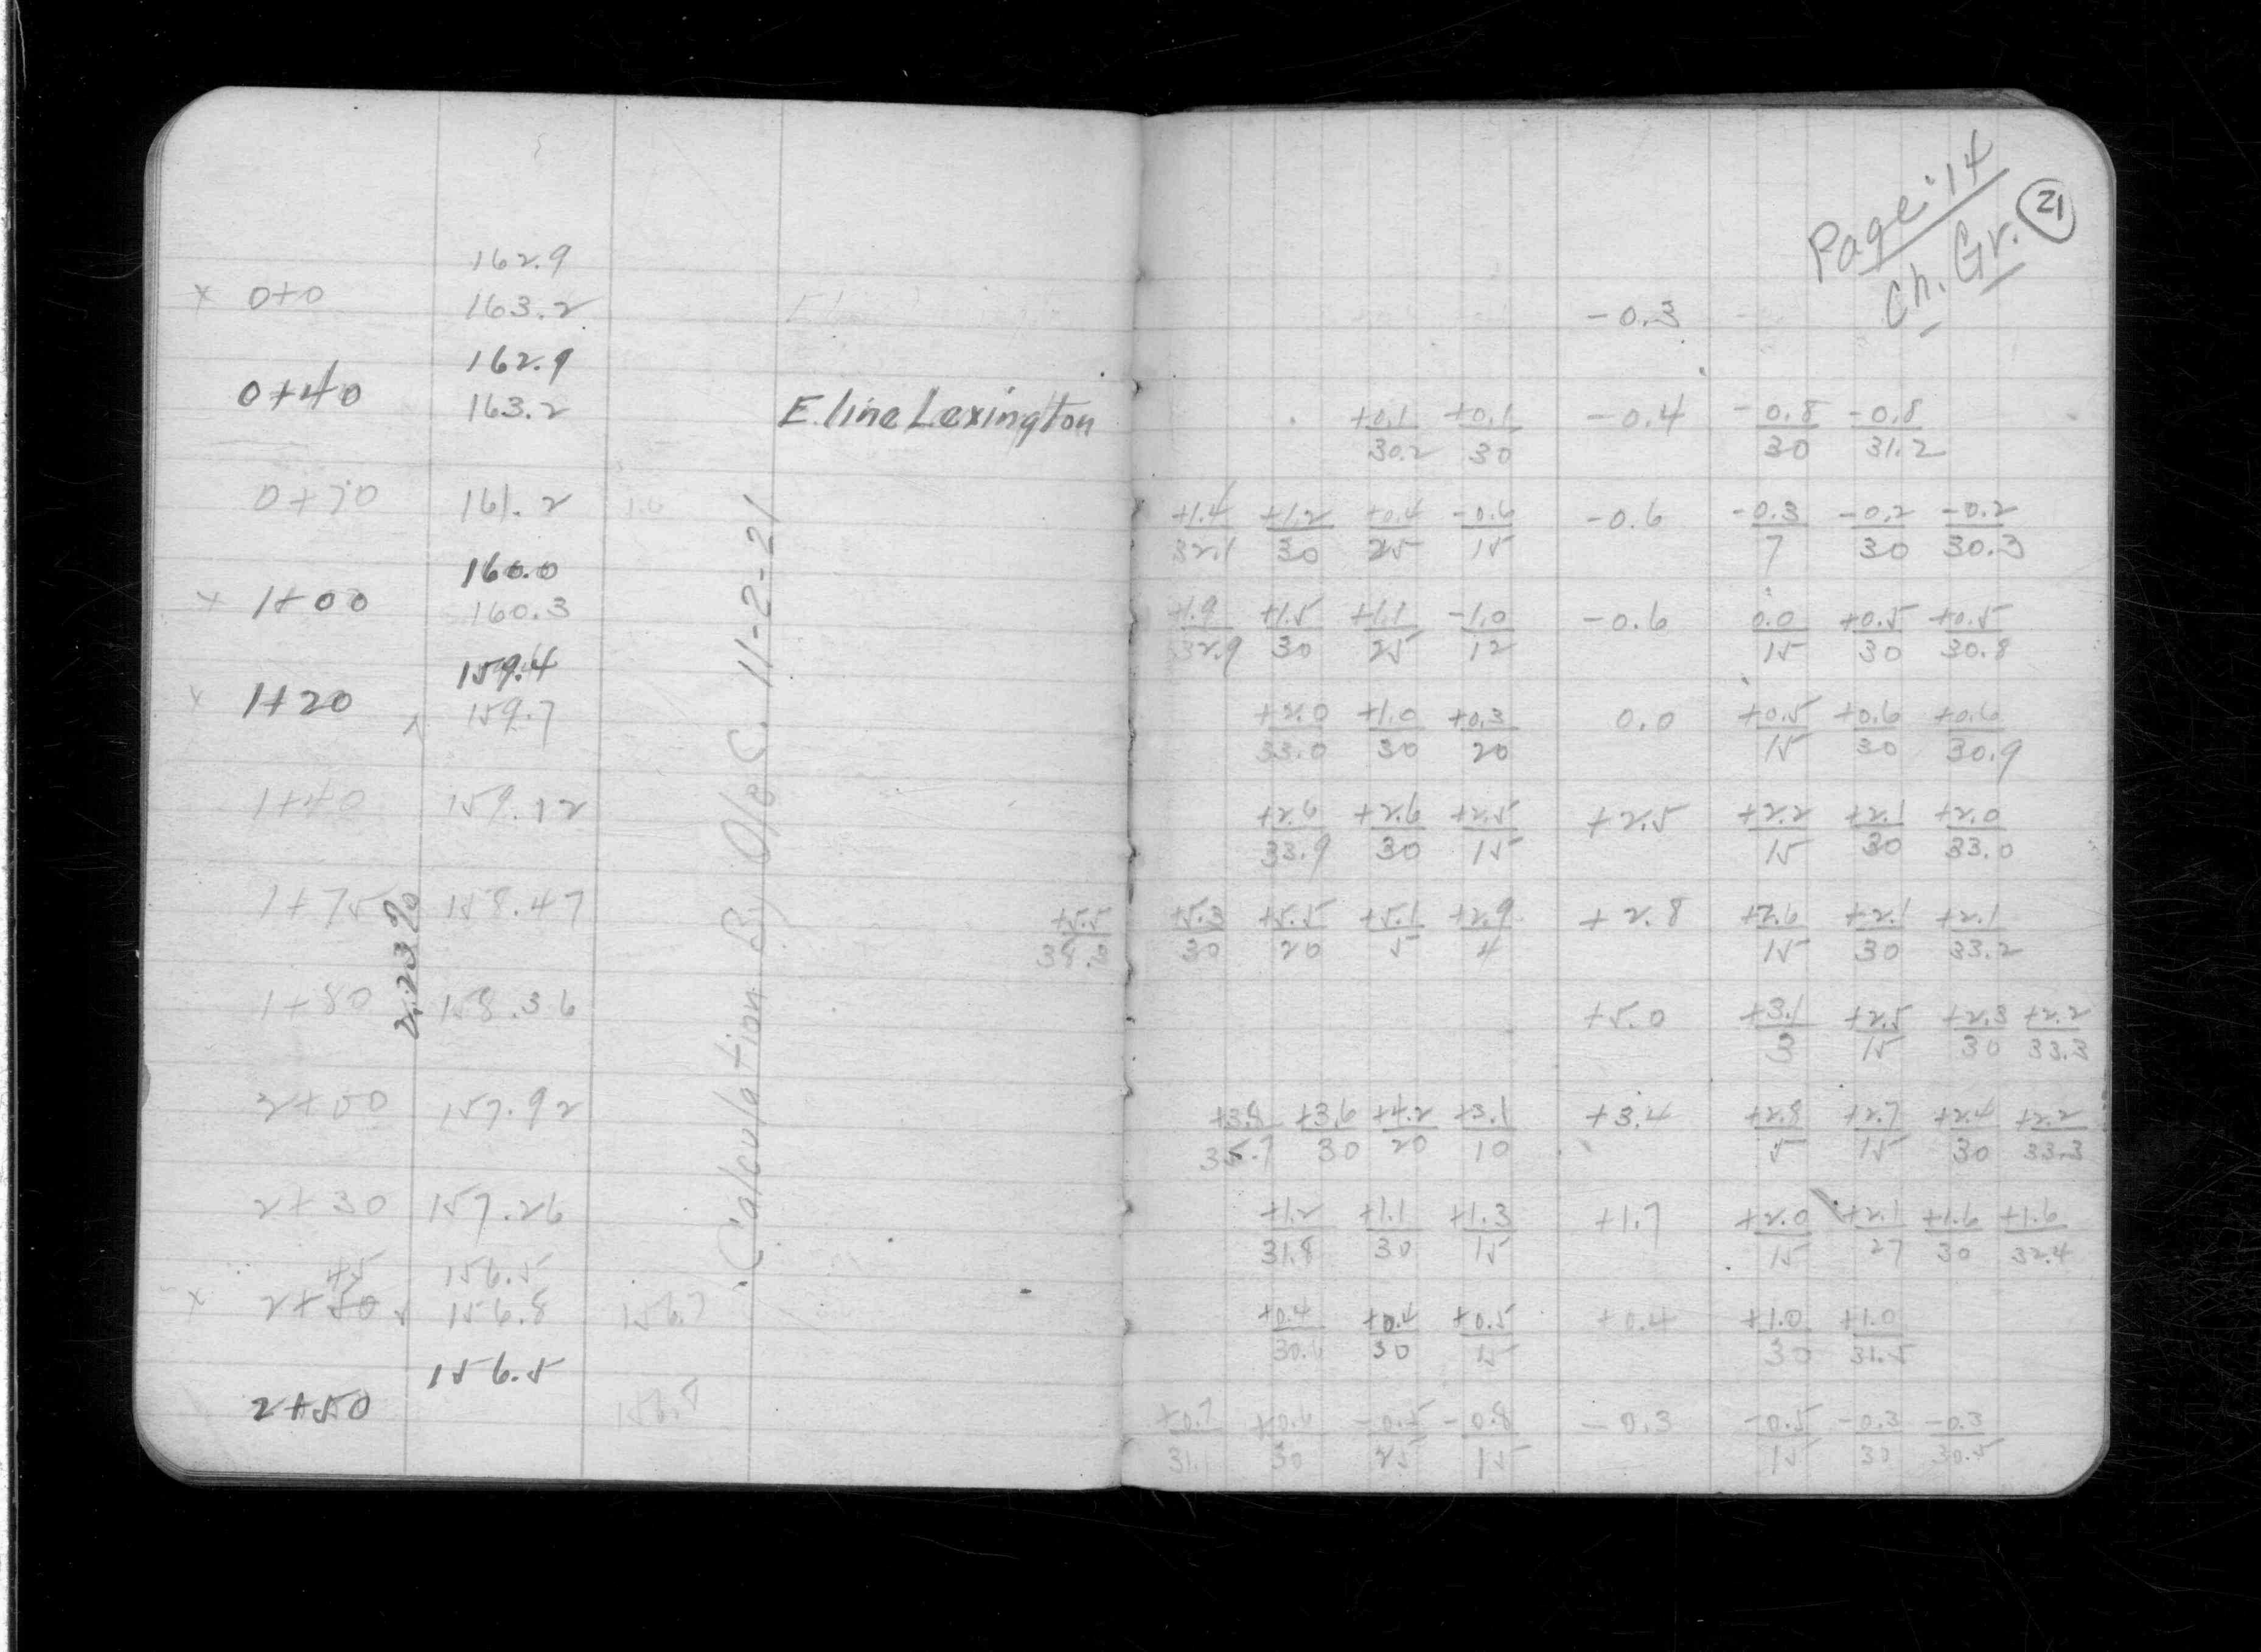 162.9
x 0+0 163.2 -0.3
162.9
0+40 163.2 E. line Lexington +0.1/30.2 +0.1/30 -0.4 -0.8/30 -0.8/31.2
0+70 161.2 1.6 +1.4/32.1 +1.2/30 +0.4/25 -0.6/15 -0.6 -0.3/7 -0.2/30 -0.2/30.3
160.0
x 1+00 160.3 +1.9/32.9 +1.5/30 +1.1/25 -1.0/12 -0.6 0.0/15 +0.5/30 +0.5/30.8
159.4
x 1+20 159.7 +2.0/33.0 +1.0/30 +0.3/20 0.0 +0.5/15 +0.6/30 +0.6/30.9
1+40 159.12 +2.6/33.9 +2.6/30 +2.5/15 +2.5 +2.2/15 +2.1/30 +2.0/33.0
1+75 158.47 +5.5/38.3 +5.3/30 +5.5/20 +5.1/5 +2.9/4 +2.8 +2.6/15 +2.1/30 +2.1/33.2
2.23%
1+80 158.36 +5.0 +3.1/3 +2.5/15 +2.3/30 +2.2/33.3
2+00 157.92 +3.8/35.7 +3.6/30 +4.2/20 +3.1/10 +3.4 +2.8/5 +2.7/15 +2.4/30 +2.2/33.3
2+30 157.26 +1.2/31.8 +1.1/30 +1.3/15 +1.7 +2.0/15 +2.1/27 +1.6/30 +1.6/32.4
45 156.5
x 2+50 156.8 156.7 +0.4/30.6 +0.4/30 +0.5/15 +0.4 +1.0/30 +1.0/31.5
156.5
2+50 156.5 +0.7/31.1 +0.6/30 -0.5/25 -0.8/15 -0.3 -0.5/15 -0.3/30 -0.3/30.5
Calculation By O/eC. 11-2-21
Page 14
Ch. Gr.
21